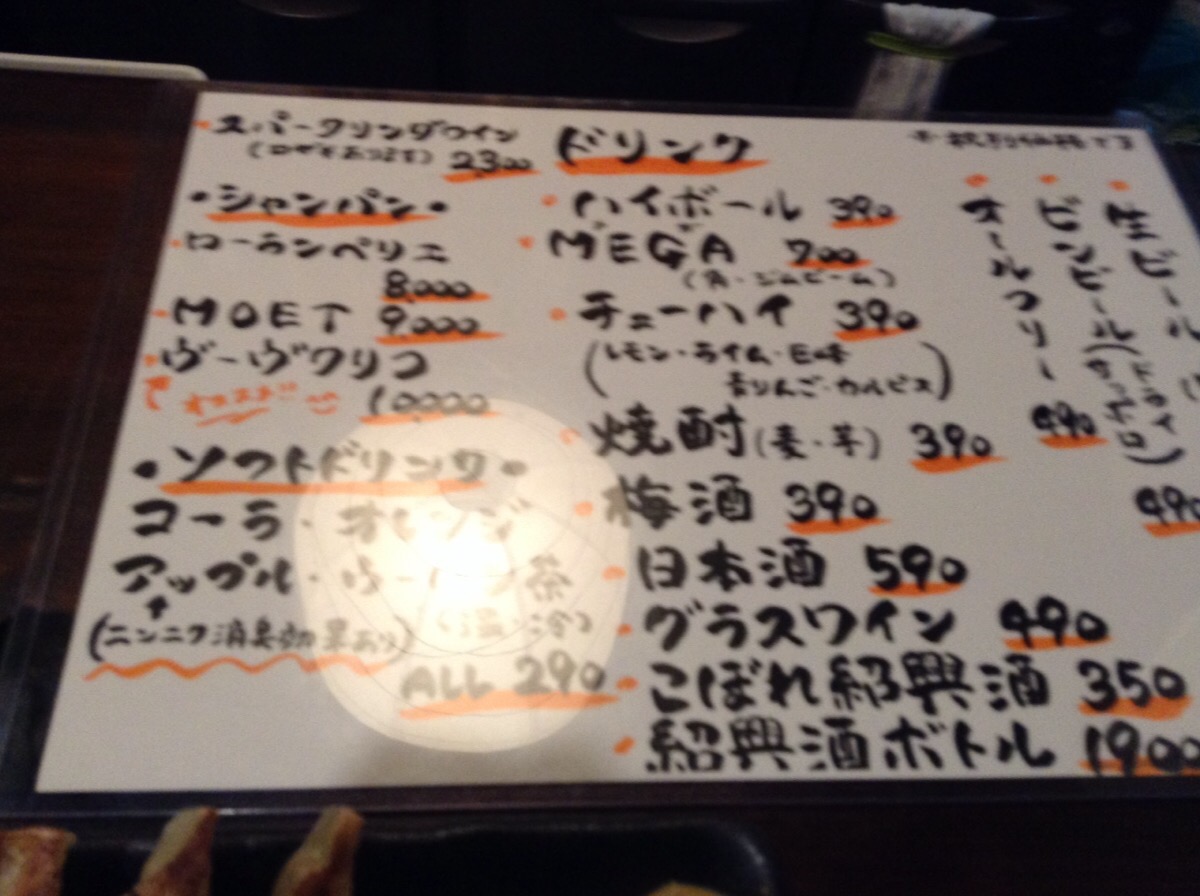 ドリンク
生ビール
490
ビンビール(サッポロ
ドライ)
オールフリー
490
ハイボール 390
MEGA 700
(角・ジムビーム)
チューハイ 390
(レモン・ライム・巨峰
青りんご・カルピス)
焼酎(麦・芋) 390
梅酒 390
日本酒 590
グラスワイン 490
こぼれ紹興酒 350
紹興酒ボトル 1900
スパークリングワイン
(ロゼもあります) 2300
・シャンパン・
ローランペリエ
8,000
MOET 9,000
ヴーヴクリコ
オススメ!! 10,000
・ソフトドリンク・
コーラ・オレンジ
アップル・ウーロン茶
(ニンニク消臭効果あり) (温・冷)
ALL 290